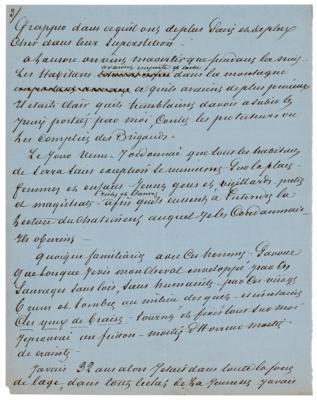 3/
frapper dans ce qu'ils ont de plus Sacré et de plus
Cher dans leur Superstition.
a l'aurore on vint m'avertir que pendant la nuit
avaient emporté
Les habitans dans la montagne
ce qu'ils avaient de plus précieux
Il était clair qu'ils tremblaient d'avoir à subir les
Peines portées par moi Contre les protecteurs ou
Les Complices des Brigands.
Le Jour Venu J'ordonnai que tous les habitans
de Serra sans exception se réunissent Sur la place
femmes et enfants Jeunes gens et vieillards prêtres
et magistrats afin qu'ils eussent à Entendre la
Lecture du Chatiment auquel Je les Condamnais
Ils obéirent
quoique familiarisé avec Ces hommes J'avoue
que Lorsque Je vis mon cheval enveloppé par les
Sauvages Sans lois, Sans humanité par Ces visages
bruns et Sombres au milieu desquels étincelaient
Ces yeux de braise tournés et fixés tous Sur moi
J'éprouvai un frisson moitié d'Horreur moitié
de crainte
J'avais 32 ans alors J'étais dans toute la force
de l'age, dans tout l'éclat de La Jeunesse J'avais